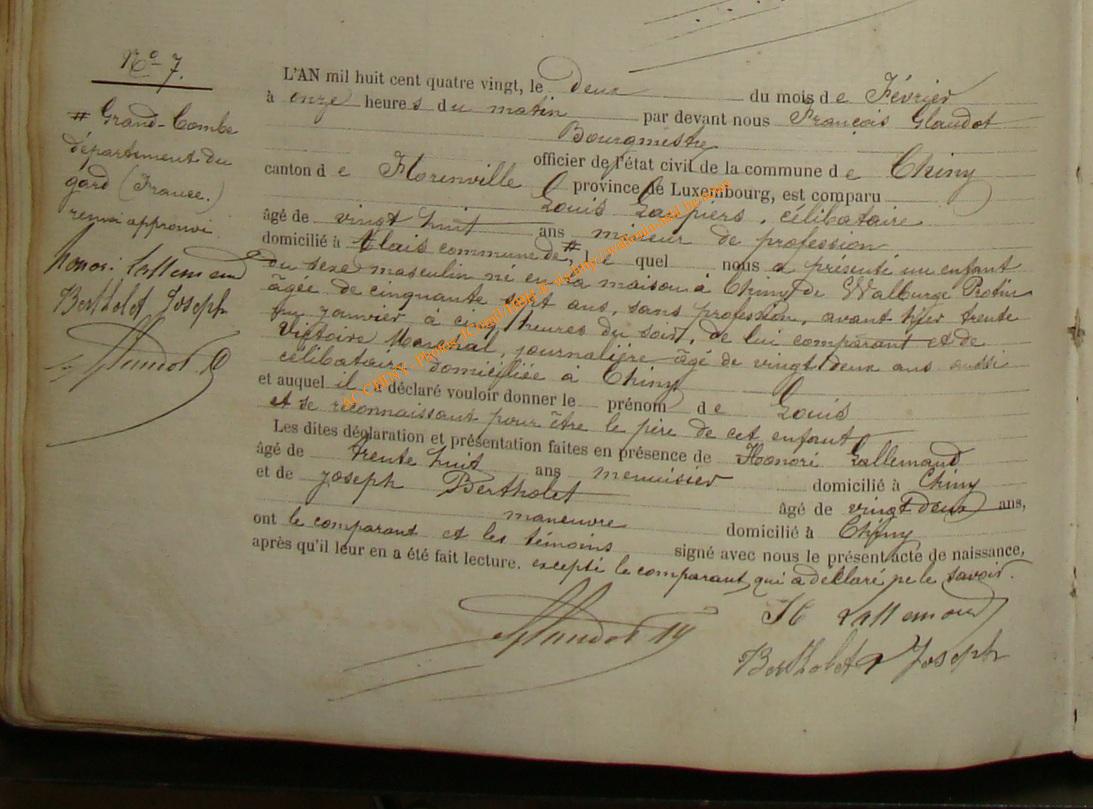 No 7.
# Grand-Combe
département du
gard (France.)
renvoi approuvé.
Honoré Lallemand
Bertholet Joseph
Glaudot
L'AN mil huit cent quatre vingt, le deux du mois de Février
à onze heures du matin par devant nous François Glaudot
Bourgmestre
officier de l'état civil de la commune de Chiny
canton de Florenville province de Luxembourg, est comparu
Louis célibataire
âgé de vingt huit ans mineur de profession
domicilié à Alais commune de #, le quel nous a présenté un enfant
du sexe masculin né en la maison à Chiny de Walburge Protin
âgée de cinquante sept ans, sans profession, avant hier trente
un janvier à cinq heures du soir, de lui comparant et de
Victoire Maréchal, journalière âgé de vingt deux ans aussi
célibataire domiciliée à Chiny
et auquel il a déclaré vouloir donner le prénom de Louis
et se reconnaissant pour être le père de cet enfant
Les dites déclaration et présentation faites en présence de Honoré Lallemand
âgé de trente huit ans menuisier domicilié à Chiny
et de Joseph Bertholet âgé de vingt deux ans,
manœuvre domicilié à Chiny
ont le comparant et les témoins signé avec nous le présent acte de naissance,
après qu'il leur en a été fait lecture. excepté le comparant qui a déclaré ne le savoir.
Glaudot
H Lallemand
Bertholet Joseph